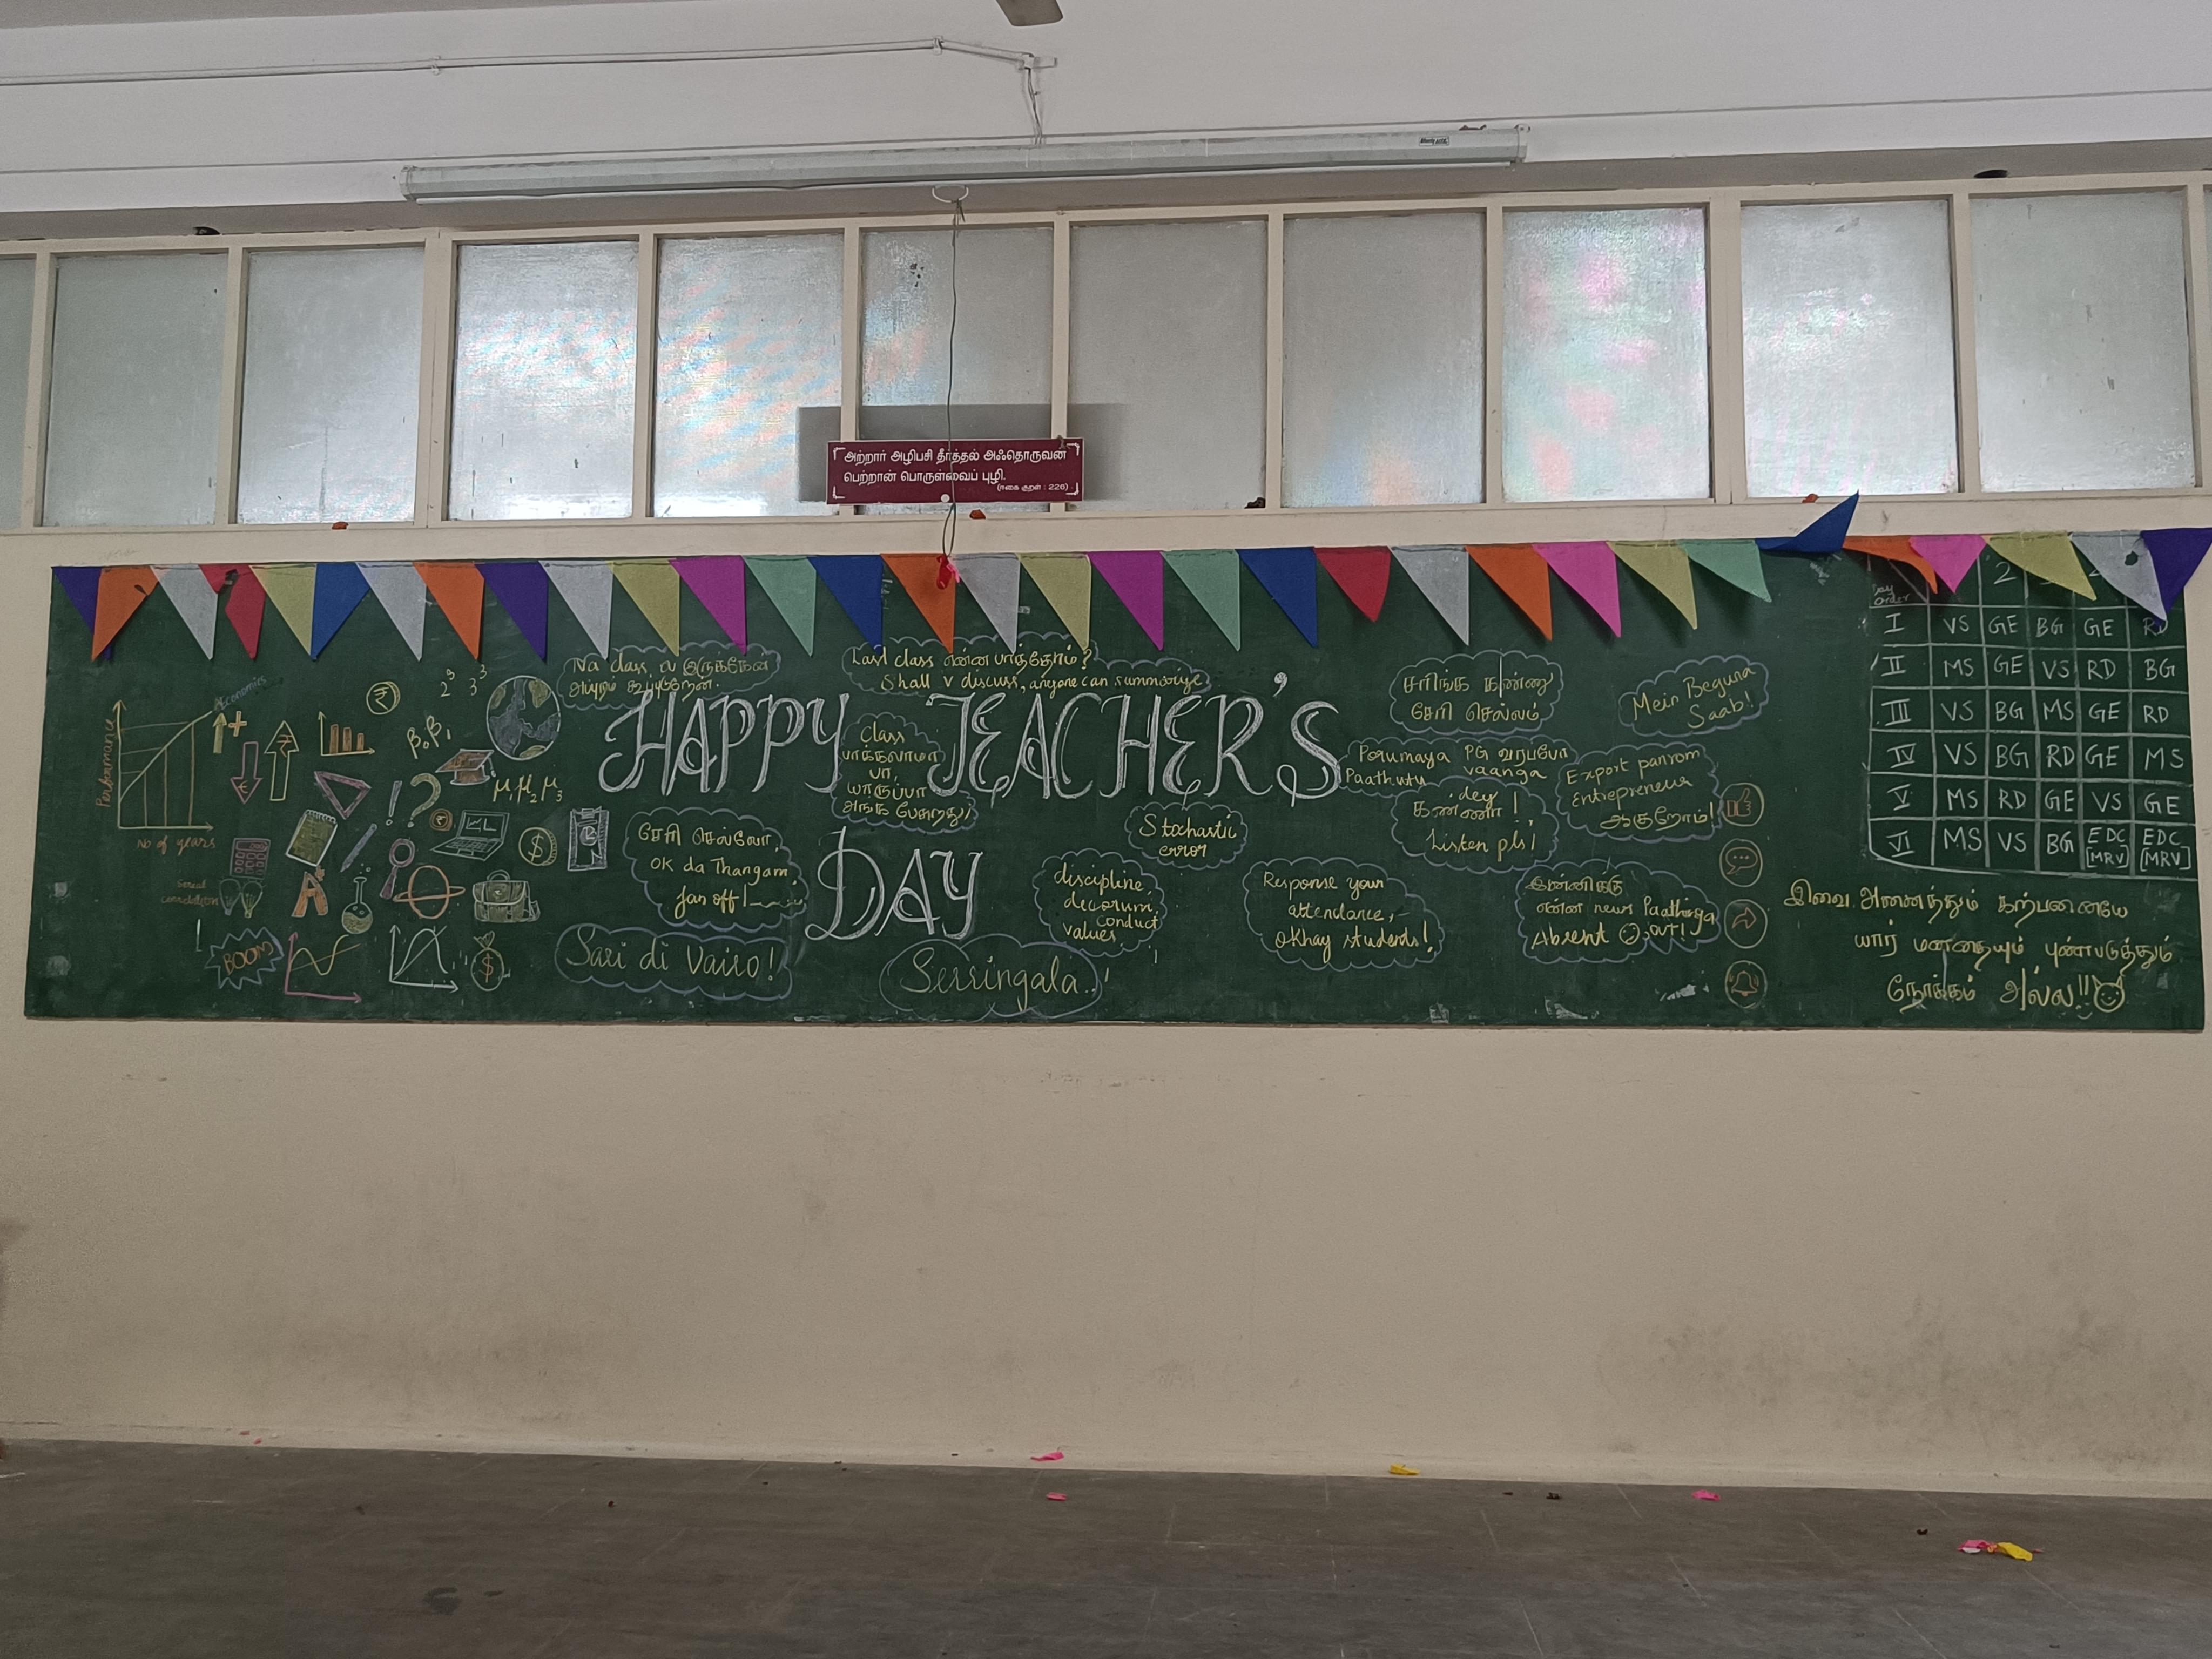 அற்றார் அழிபசி தீர்த்தல் அஃதொருவன்
பெற்றான் பொருள்வைப் புழி.
(ஈகை குறள் : 226)
HAPPY TEACHER'S
DAY
Economics
Performance
No of years
2³ 3³
β₀ β₁
μ₁ μ₂ μ₃
Serial
BOOM
Na class ல இருக்கேன்
அப்புறம் கூப்புடுறேன்.
Last class என்ன பாத்தோம்?
Shall v discuss, anyone can summarize
Class
பாக்கலாமா
பா,
யாருப்பா
அங்க பேசுறது,
சேரி செல்லோ,
OK da Thangam
fan off!
Sari di Vairo!
Serringala..!
discipline,
decorum,
conduct
values,
Stochastic
error
Response your
attendance,
Okhay students!
சரிங்க கண்ணு
சேரி செல்லம்
Porumaya PG வரப்போ
Paathutu vaanga
dey!
கண்ணா!,
Listen pls!
Mein Beguna
Saab!
Export panrom
Entrepreneur
ஆகுறோம்!
இன்னிக்கு
என்ன news Paathinga
Absent ☹, OUT!
Day
Order
2
I VS GE BG GE RD
II MS GE VS RD BG
III VS BG MS GE RD
IV VS BG RD GE MS
V MS RD GE VS GE
VI MS VS BG EDC [MRV] EDC [MRV]
இவை அனைத்தும் கற்பனையே
யார் மனதையும் புண்படுத்தும்
நோக்கம் அல்ல!!